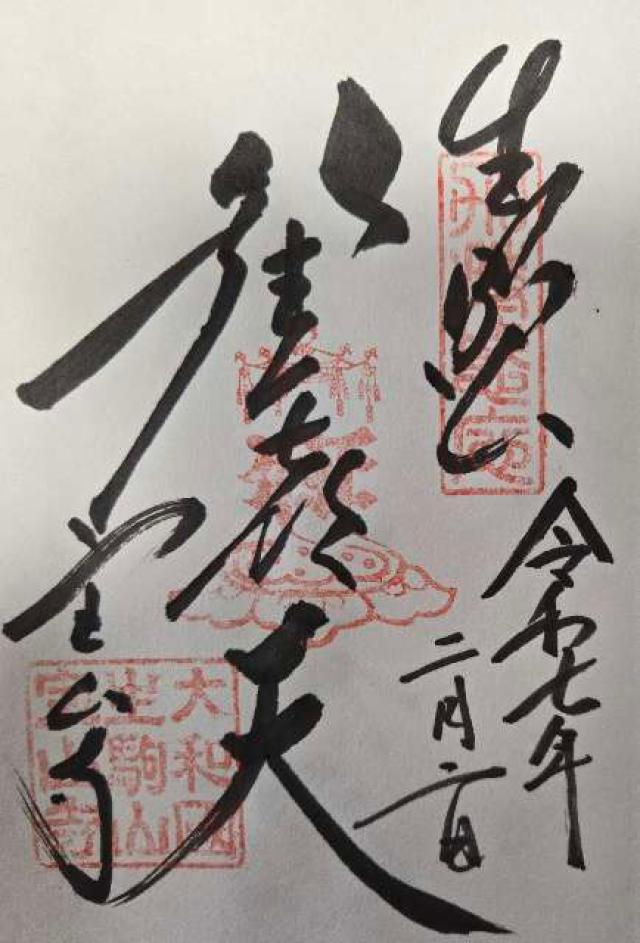 生駒山
令和七年
二月二日
歡喜天
宝山寺
大和國
生駒山
宝山寺